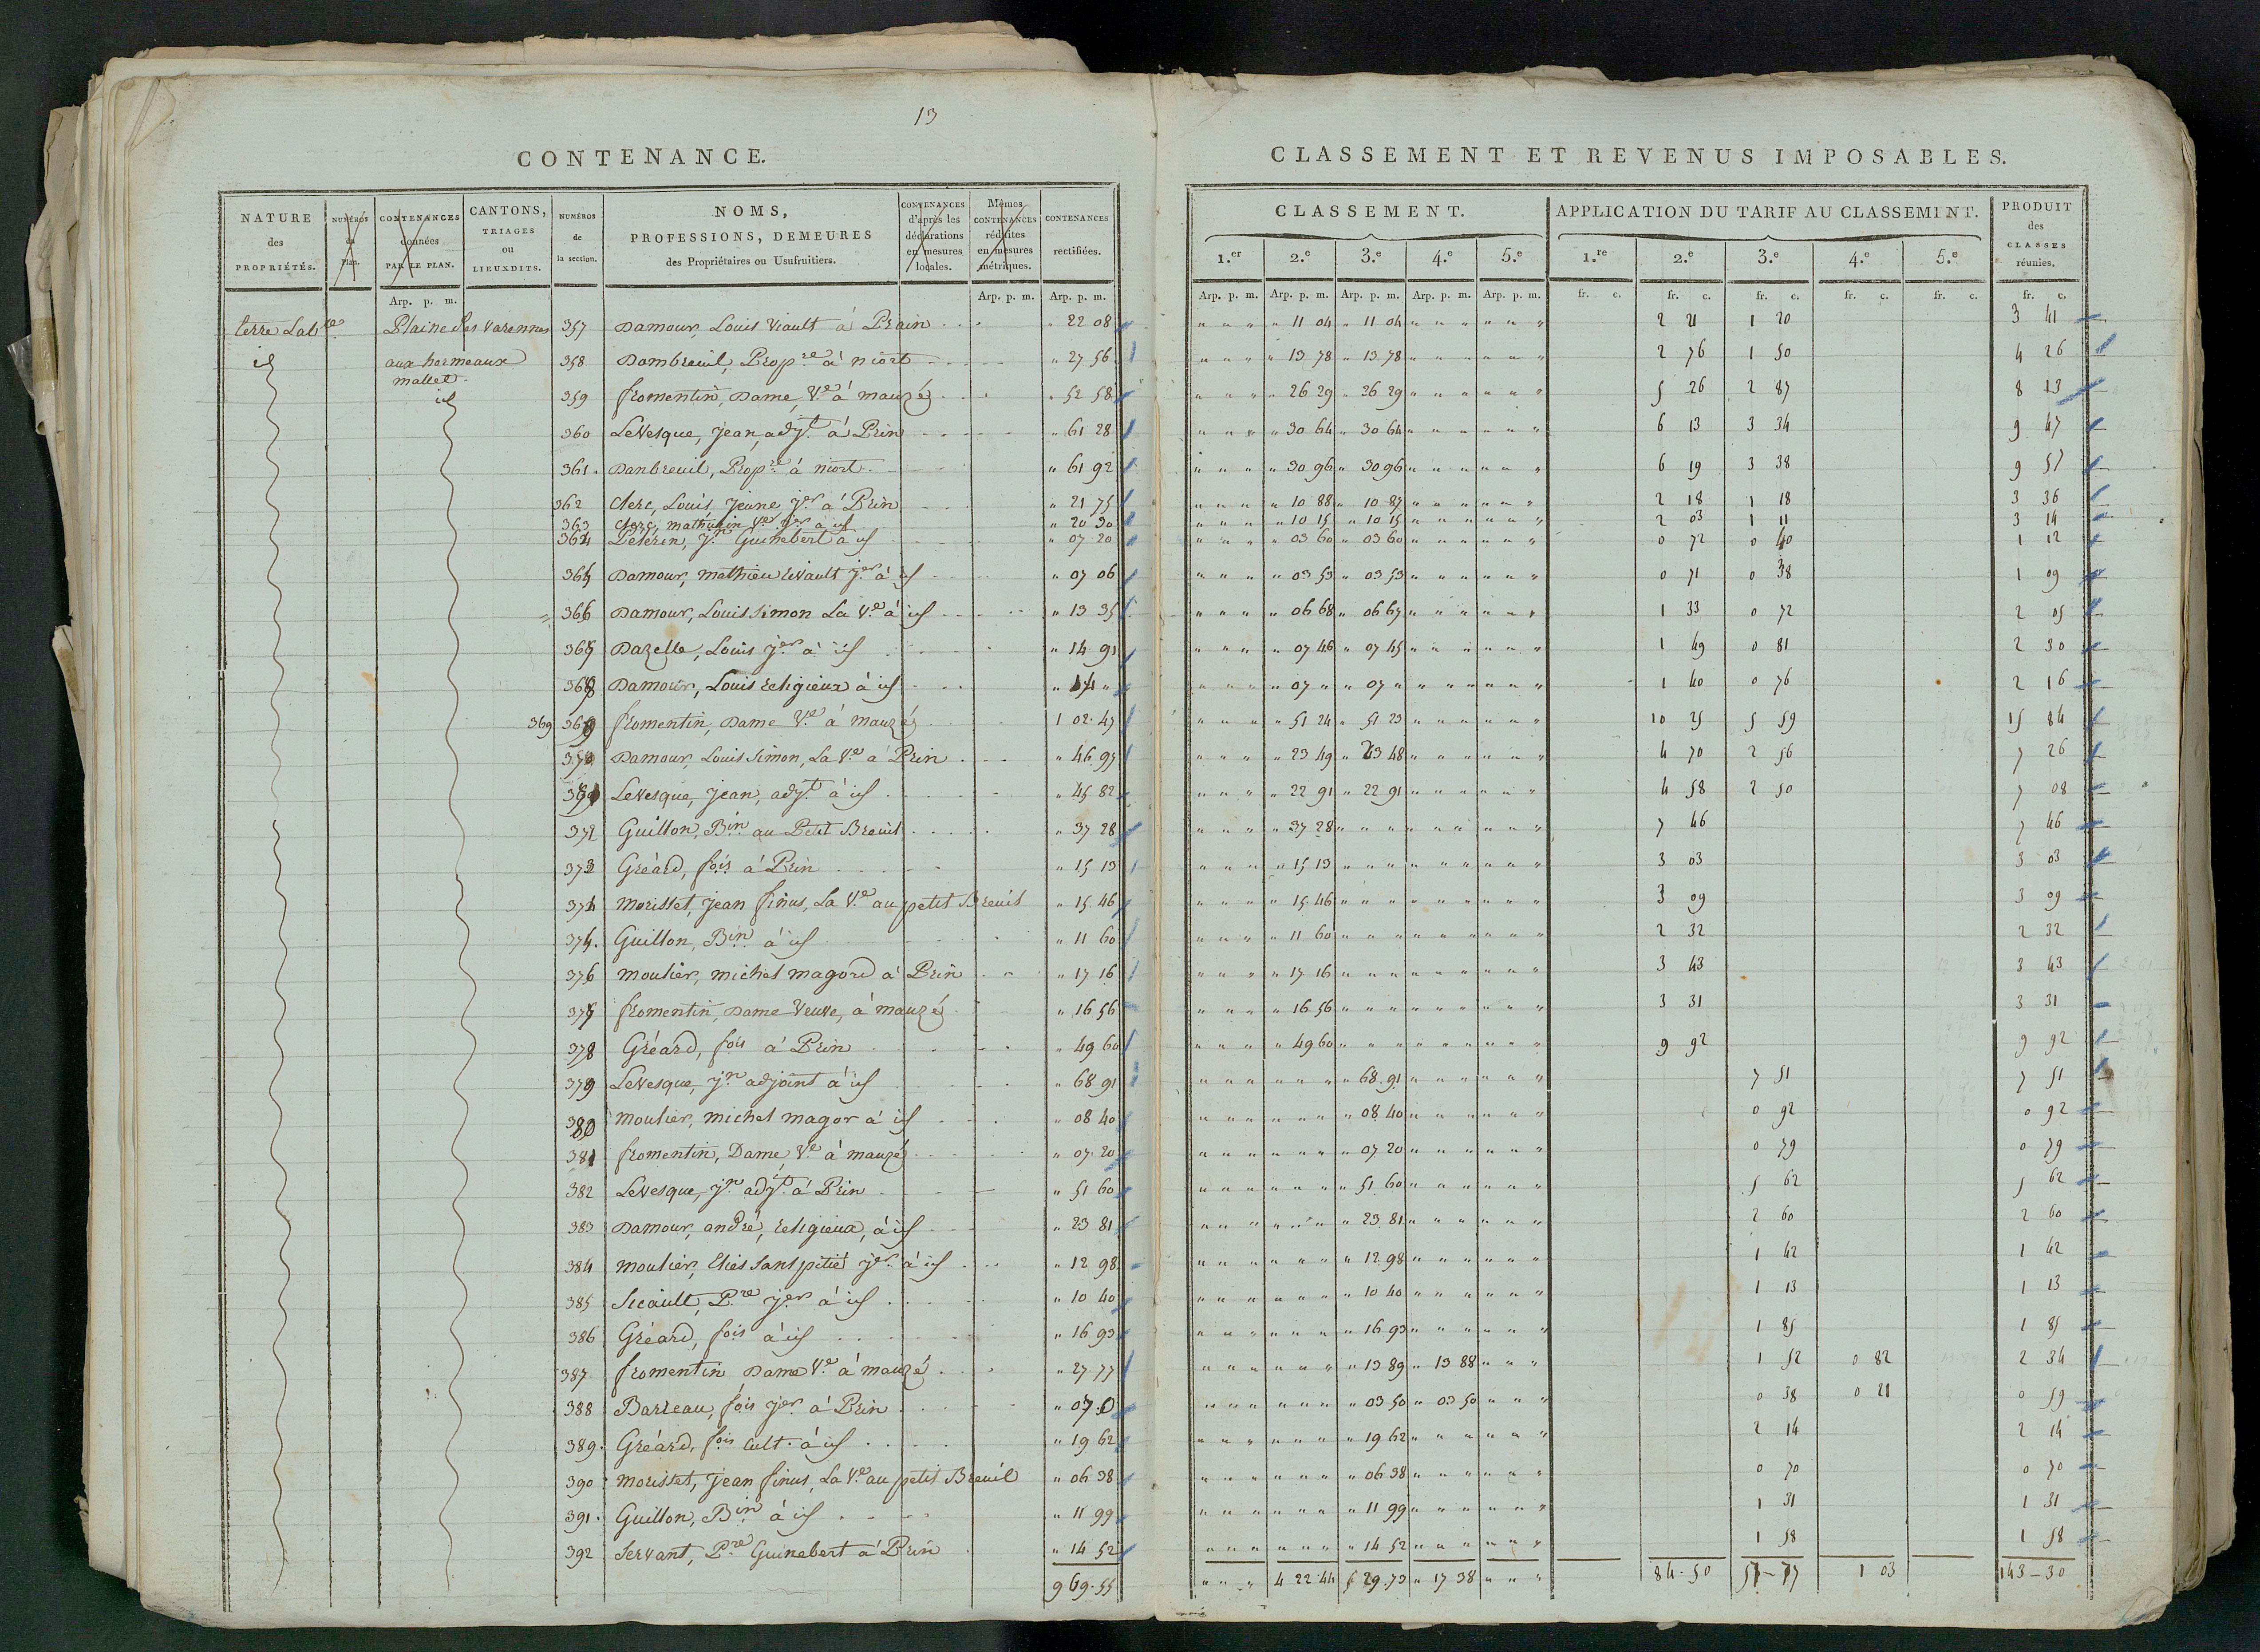 13
CONTENANCE.
NATURE des PROPRIÉTÉS. NUMÉROS du Plan. CONTENANCES données PAR LE PLAN. CANTONS, TRIAGES ou LIEUXDITS. NUMÉROS de la section. NOMS, PROFESSIONS, DEMEURES des Propriétaires ou Usufruitiers. CONTENANCES d'après les déclarations en mesures locales. Mêmes CONTENANCES réduites en mesures métriques. CONTENANCES rectifiées.
Arp. p. m. Arp. p. m. Arp. p. m.
terre Labre Plaine des Varennes 357 Damour, Louis Viault à Prin " 22 08
id aux hormeaux mallet 358 Dombreuil, Propre à niort " 27 56
id 359 fromentin, Dame, Ve à mauzé " 52 58
360 LeVesque, jean, adjt à Prin " 61 28
361. Danbreuil, Propre à niort " 61 92
362 Clerc, Louis, jeune jer à Prin " 21 75
363 Clerc, mathurin Ver jer à id " 20 30
364 Pelerin, jn Guinebert à id " 07 20
365 Damour, mathieu Evault jer à id " 07 06
366 Damour, Louis Simon La Ve à id " 13 35
367 Dazelle, Louis jer à id " 14 91
368 Damour, Louis religieux à id " 14 "
369 369 fromentin, Dame Ve à mauzé 1 02 47
370 Damour, Louis Simon, La Ve à Prin " 46 97
371 LeVesque, jean, adjt à id " 45 82
372 Guillon, Bin au Petit Breuil " 37 28
373 Gréard, fois à Prin " 15 13
374 Morisset, jean finus, La Ve au petit Breuil " 15 46
375. Guillon, Bin à id " 11 60
376 moulier, michel magord à Prin " 17 16
377 fromentin, Dame Veuve, à mauzé " 16 56
378 Gréard, fois à Prin " 49 60
379 LeVesque, jn adjoint à id " 68 91
380 moulier, michel magor à id " 08 40
381 fromentin, Dame, Ve à mauzé " 07 20
382 LeVesque, jn adjt à Prin " 51 60
383 Damour, andré, religieux, à id " 23 81
384 moulier, Elies Sans pitié jer à id " 12 98
385 Sicault, Pre jer à id " 10 40
386 Gréard, fois à id " 16 93
387 fromentin Dame Ve à mauzé " 27 77
388 Barreau, fois jer à Prin " 07 0
389. Gréard, fois cult. à id " 19 62
390 morisset, jean finus, La Ve au petit Breuil " 06 38
391. Guillon, Bin à id " 11 99
392 Servant, Pre Guinebert à Prin " 14 52
9 69.55
CLASSEMENT ET REVENUS IMPOSABLES.
CLASSEMENT. APPLICATION DU TARIF AU CLASSEMENT. PRODUIT des CLASSES réunies.
1.er 2.e 3.e 4.e 5.e 1.re 2.e 3.e 4.e 5.e
Arp. p. m. Arp. p. m. Arp. p. m. Arp. p. m. Arp. p. m. fr. c. fr. c. fr. c. fr. c. fr. c. fr. c.
" " " " 11 04 " 11 04 " " " " " " 2 21 1 20 3 41
" " " " 13 78 " 13 78 " " " " " " 2 76 1 50 4 26
" " " " 26 29 " 26 29 " " " " " " 5 26 2 87 8 13
" " " " 30 64 " 30 64 " " " " " " 6 13 3 34 9 47
" " " " 30 96 " 30 96 " " " " " " 6 19 3 38 9 57
" " " " 10 88 " 10 87 " " " " " " 2 18 1 18 3 36
" " " " 10 15 " 10 15 " " " " " " 2 03 1 11 3 14
" " " " 03 60 " 03 60 " " " " " " 0 72 0 40 1 12
" " " " 03 53 " 03 53 " " " " " " 0 71 0 38 1 09
" " " " 06 68 " 06 67 " " " " " " 1 33 0 72 2 05
" " " " 07 46 " 07 45 " " " " " " 1 49 0 81 2 30
" " " " 07 " " 07 " " " " " " " 1 40 0 76 2 16
" " " " 51 24 " 51 23 " " " " " " 10 25 5 59 15 84
" " " " 23 49 " 23 48 " " " " " " 4 70 2 56 7 26
" " " " 22 91 " 22 91 " " " " " " 4 58 2 50 7 08
" " " " 37 28 " " " " " " " " " 7 46 7 46
" " " " 15 13 " " " " " " " " " 3 03 3 03
" " " " 15 46 " " " " " " " " " 3 09 3 09
" " " " 11 60 " " " " " " " " " 2 32 2 32
" " " " 17 16 " " " " " " " " " 3 43 3 43
" " " " 16 56 " " " " " " " " " 3 31 3 31
" " " " 49 60 " " " " " " " " " 9 92 9 92
" " " " " " " 68 91 " " " " " " 7 51 7 51
" " " " " " " 08 40 " " " " " " 0 92 0 92
" " " " " " " 07 20 " " " " " " 0 79 0 79
" " " " " " " 51 60 " " " " " " 5 62 5 62
" " " " " " " 23 81 " " " " " " 2 60 2 60
" " " " " " " 12 98 " " " " " " 1 42 1 42
" " " " " " " 10 40 " " " " " " 1 13 1 13
" " " " " " " 16 93 " " " " " " 1 85 1 85
" " " " " " " 13 89 " 13 88 " " " 1 52 0 82 2 34
" " " " " " " 03 50 " 03 50 " " " 0 38 0 21 0 59
" " " " " " " 19 62 " " " " " " 2 14 2 14
" " " " " " " 06 38 " " " " " " 0 70 0 70
" " " " " " " 11 99 " " " " " " 1 31 1 31
" " " " " " " 14 52 " " " " " " 1 58 1 58
" " " 4 22 44 5 29.73 " 17 38 " " " 84.50 57-77 1 03 143-30